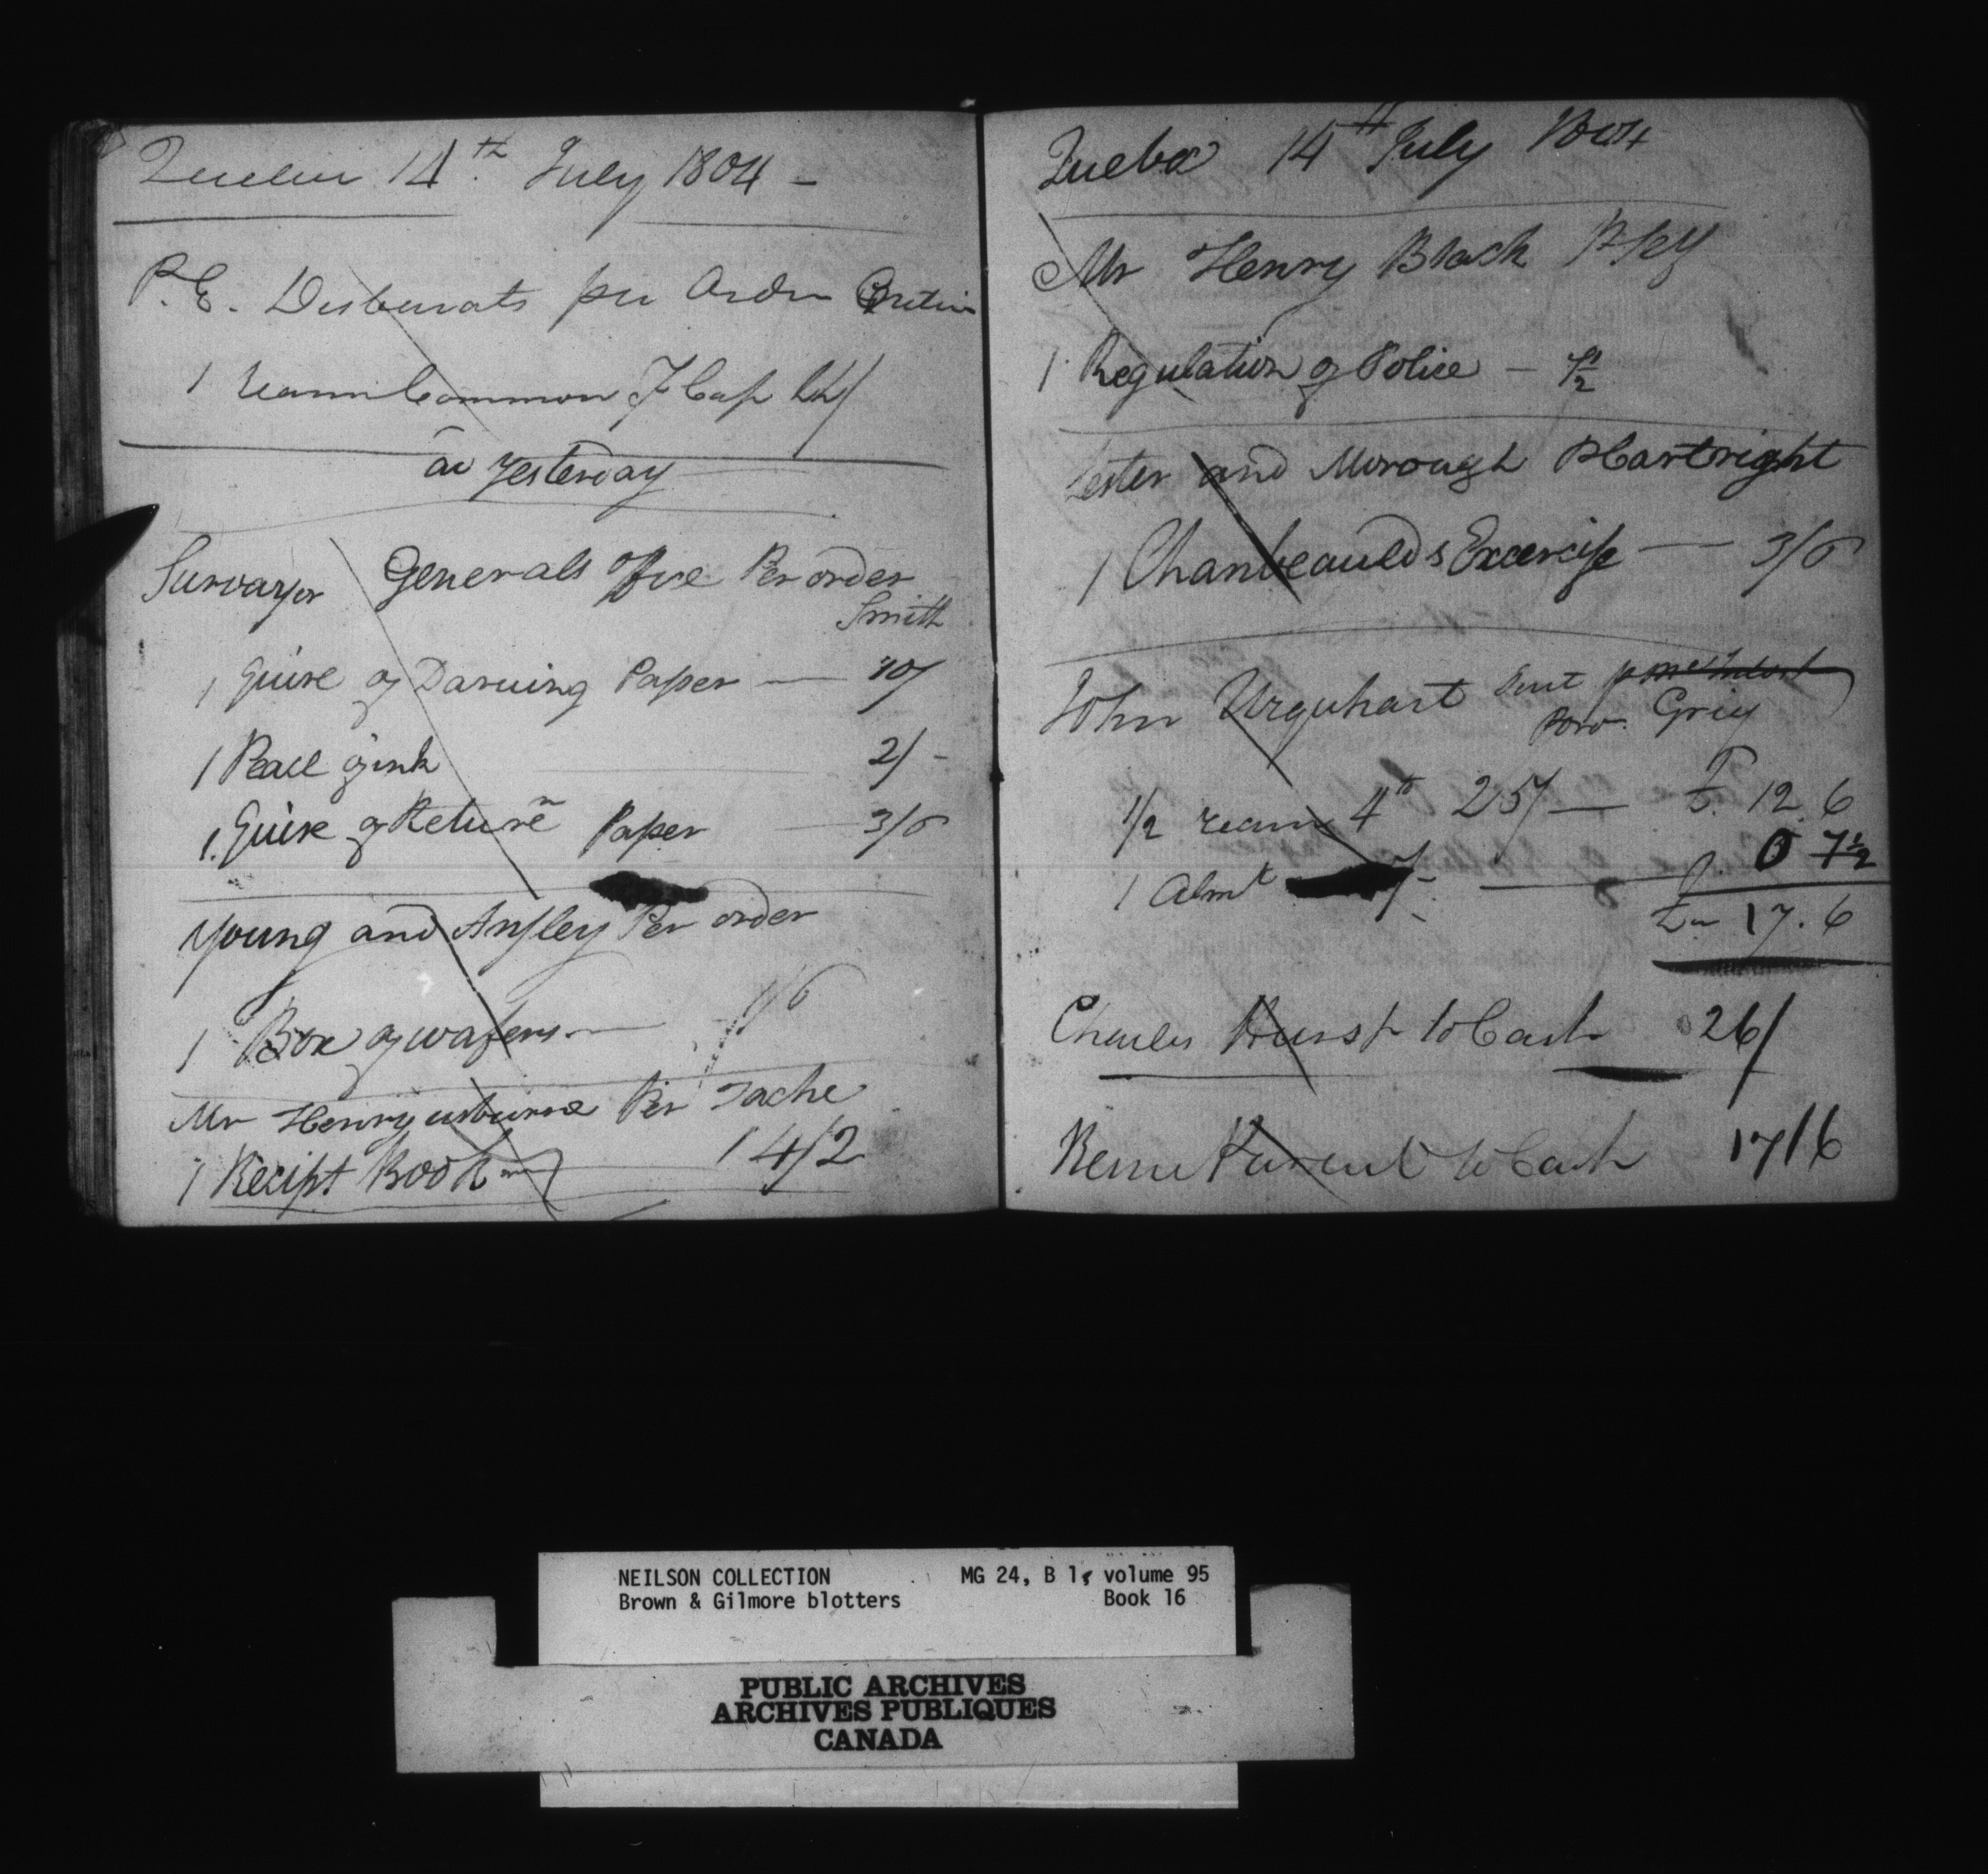 Quebec 14th July 1804 -
P. E. Desbarats per Order
1 ream Common F Cap
as yesterday
Survayor Generals Office Per order
Smith
1 Quire of Daruing Paper — 10/
1 Peace of ink 2/-
1 Quire of Paper — 3/6
Young and Ansley Per order
1 Box of wafers — 1/6
Mr Henry usburne Per Tache
1 Recipt Book 1 4/2
Quebec 14th July 1804
Mr Henry Black
1 Regulation of Police — 7½
Lester and Morough P Cartright
1 Chanbeaulds Excercise — 3/6
John Urquhart Sent p
Grey
1/2 ream 4to 25/ — £ 12. 6
0 7½
1 Almt
£ — 17. 6
Charles Hurst to Cash 26/
Parent to Cash 17/6
NEILSON COLLECTION MG 24, B 1, volume 95
Brown & Gilmore blotters Book 16
PUBLIC ARCHIVES
ARCHIVES PUBLIQUES
CANADA